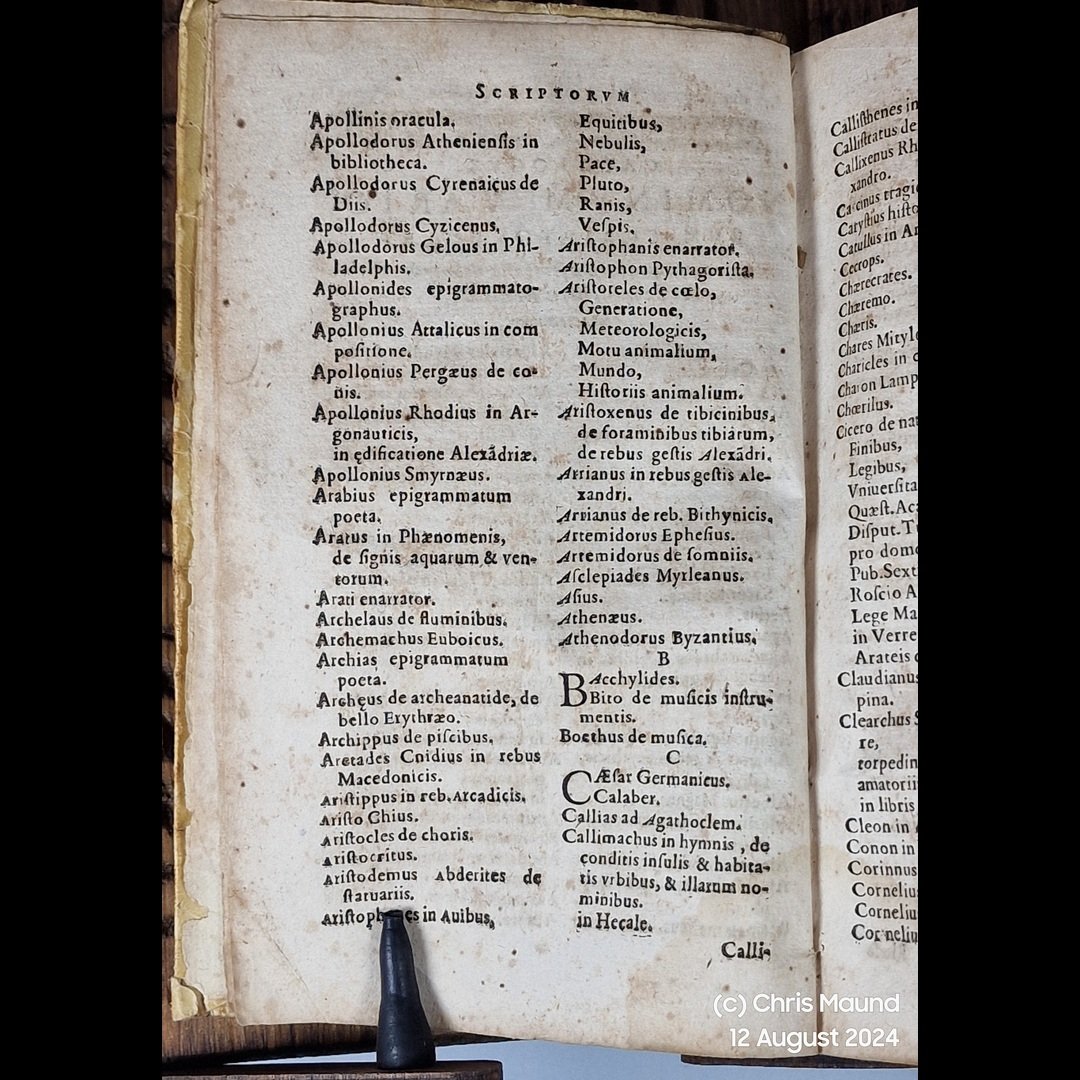 SCRIPTORVM
Apollinis oracula.
Apollodorus Atheniensis in
bibliotheca.
Apollodorus Cyrenaicus de
Diis.
Apollodorus Cyzicenus.
Apollodorus Gelous in Phi-
ladelphis.
Apollonides epigrammato-
graphus.
Apollonius Attalicus in com
positione.
Apollonius Pergæus de co-
nis.
Apollonius Rhodius in Ar-
gonauticis,
in ędificatione Alexãdriæ.
Apollonius Smyrnæus.
Arabius epigrammatum
poeta.
Aratus in Phænomenis,
de signis aquarum & ven-
torum.
Arati enarrator.
Archelaus de fluminibus.
Archemachus Euboicus.
Archias epigrammatum
poeta.
Archęus de archeanatide, de
bello Erythræo.
Archippus de piscibus.
Aretades Cnidius in rebus
Macedonicis.
Aristippus in reb. Arcadicis.
Aristo Chius.
Aristocles de choris.
Aristocritus.
Aristodemus Abderites de
statuariis.
in Auibus,
Equitibus,
Nebulis,
Pace,
Pluto,
Ranis,
Vespis.
Aristophanis enarrator.
Aristophon Pythagorista.
Aristoteles de cœlo,
Generatione,
Meteorologicis,
Motu animalium,
Mundo,
Historiis animalium.
Aristoxenus de tibicinibus,
de foraminibus tibiarum,
de rebus gestis Alexãdri.
Arrianus in rebus gestis Ale-
xandri.
Arrianus de reb. Bithynicis.
Artemidorus Ephesius.
Artemidorus de somniis.
Asclepiades Myrleanus.
Asius.
Athenæus.
Athenodorus Byzantius.
B
BAcchylides.
Bito de musicis instru-
mentis.
Boethus de musica.
C
CÆsar Germanicus.
Calaber.
Callias ad Agathoclem.
Callimachus in hymnis, de
conditis insulis & habita-
tis vrbibus, & illarum no-
minibus.
in Hecale.
Calli-
Callisthenes in
Callistratus de
Callixenus Rh
xandro.
Carcinus tragi
Carystius histo
Catullus in Ar
Cecrops.
Chærecrates.
Chæremo.
Chæris.
Chares Mityle
Charicles in c
Charon Lamp
Chœrilus.
Cicero de nat
Finibus,
Legibus,
Vniuersita
Quæst. Ac
Disput. Tu
pro domo
Pub. Sext
Roscio A
Lege Ma
in Verre
Arateis
Claudianus
pina.
Clearchus S
re,
torpedin
amatorii
in libris
Cleon in
Conon in
Corinnus
Cornelius
Cornelius
Cornelius
(c) Chris Maund
12 August 2024